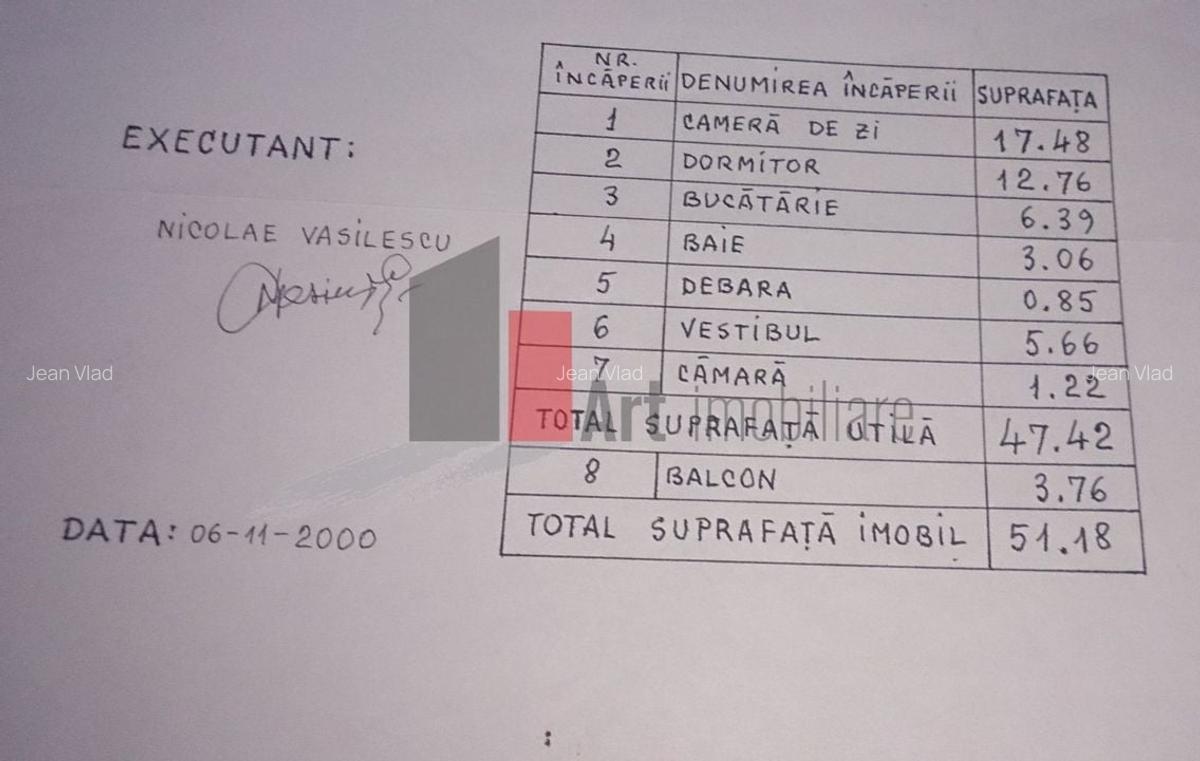 EXECUTANT:
NICOLAE VASILESCU
DATA: 06-11-2000
NR. ÎNCĂPERII DENUMIREA ÎNCĂPERII SUPRAFAȚA
1 CAMERĂ DE ZI 17.48
2 DORMITOR 12.76
3 BUCĂTĂRIE 6.39
4 BAIE 3.06
5 DEBARA 0.85
6 VESTIBUL 5.66
7 CĂMARĂ 1.22
TOTAL SUPRAFAȚĂ UTILĂ 47.42
8 BALCON 3.76
TOTAL SUPRAFAȚĂ IMOBIL 51.18
Art imobiliare
Jean Vlad
Jean Vlad
Jean Vlad